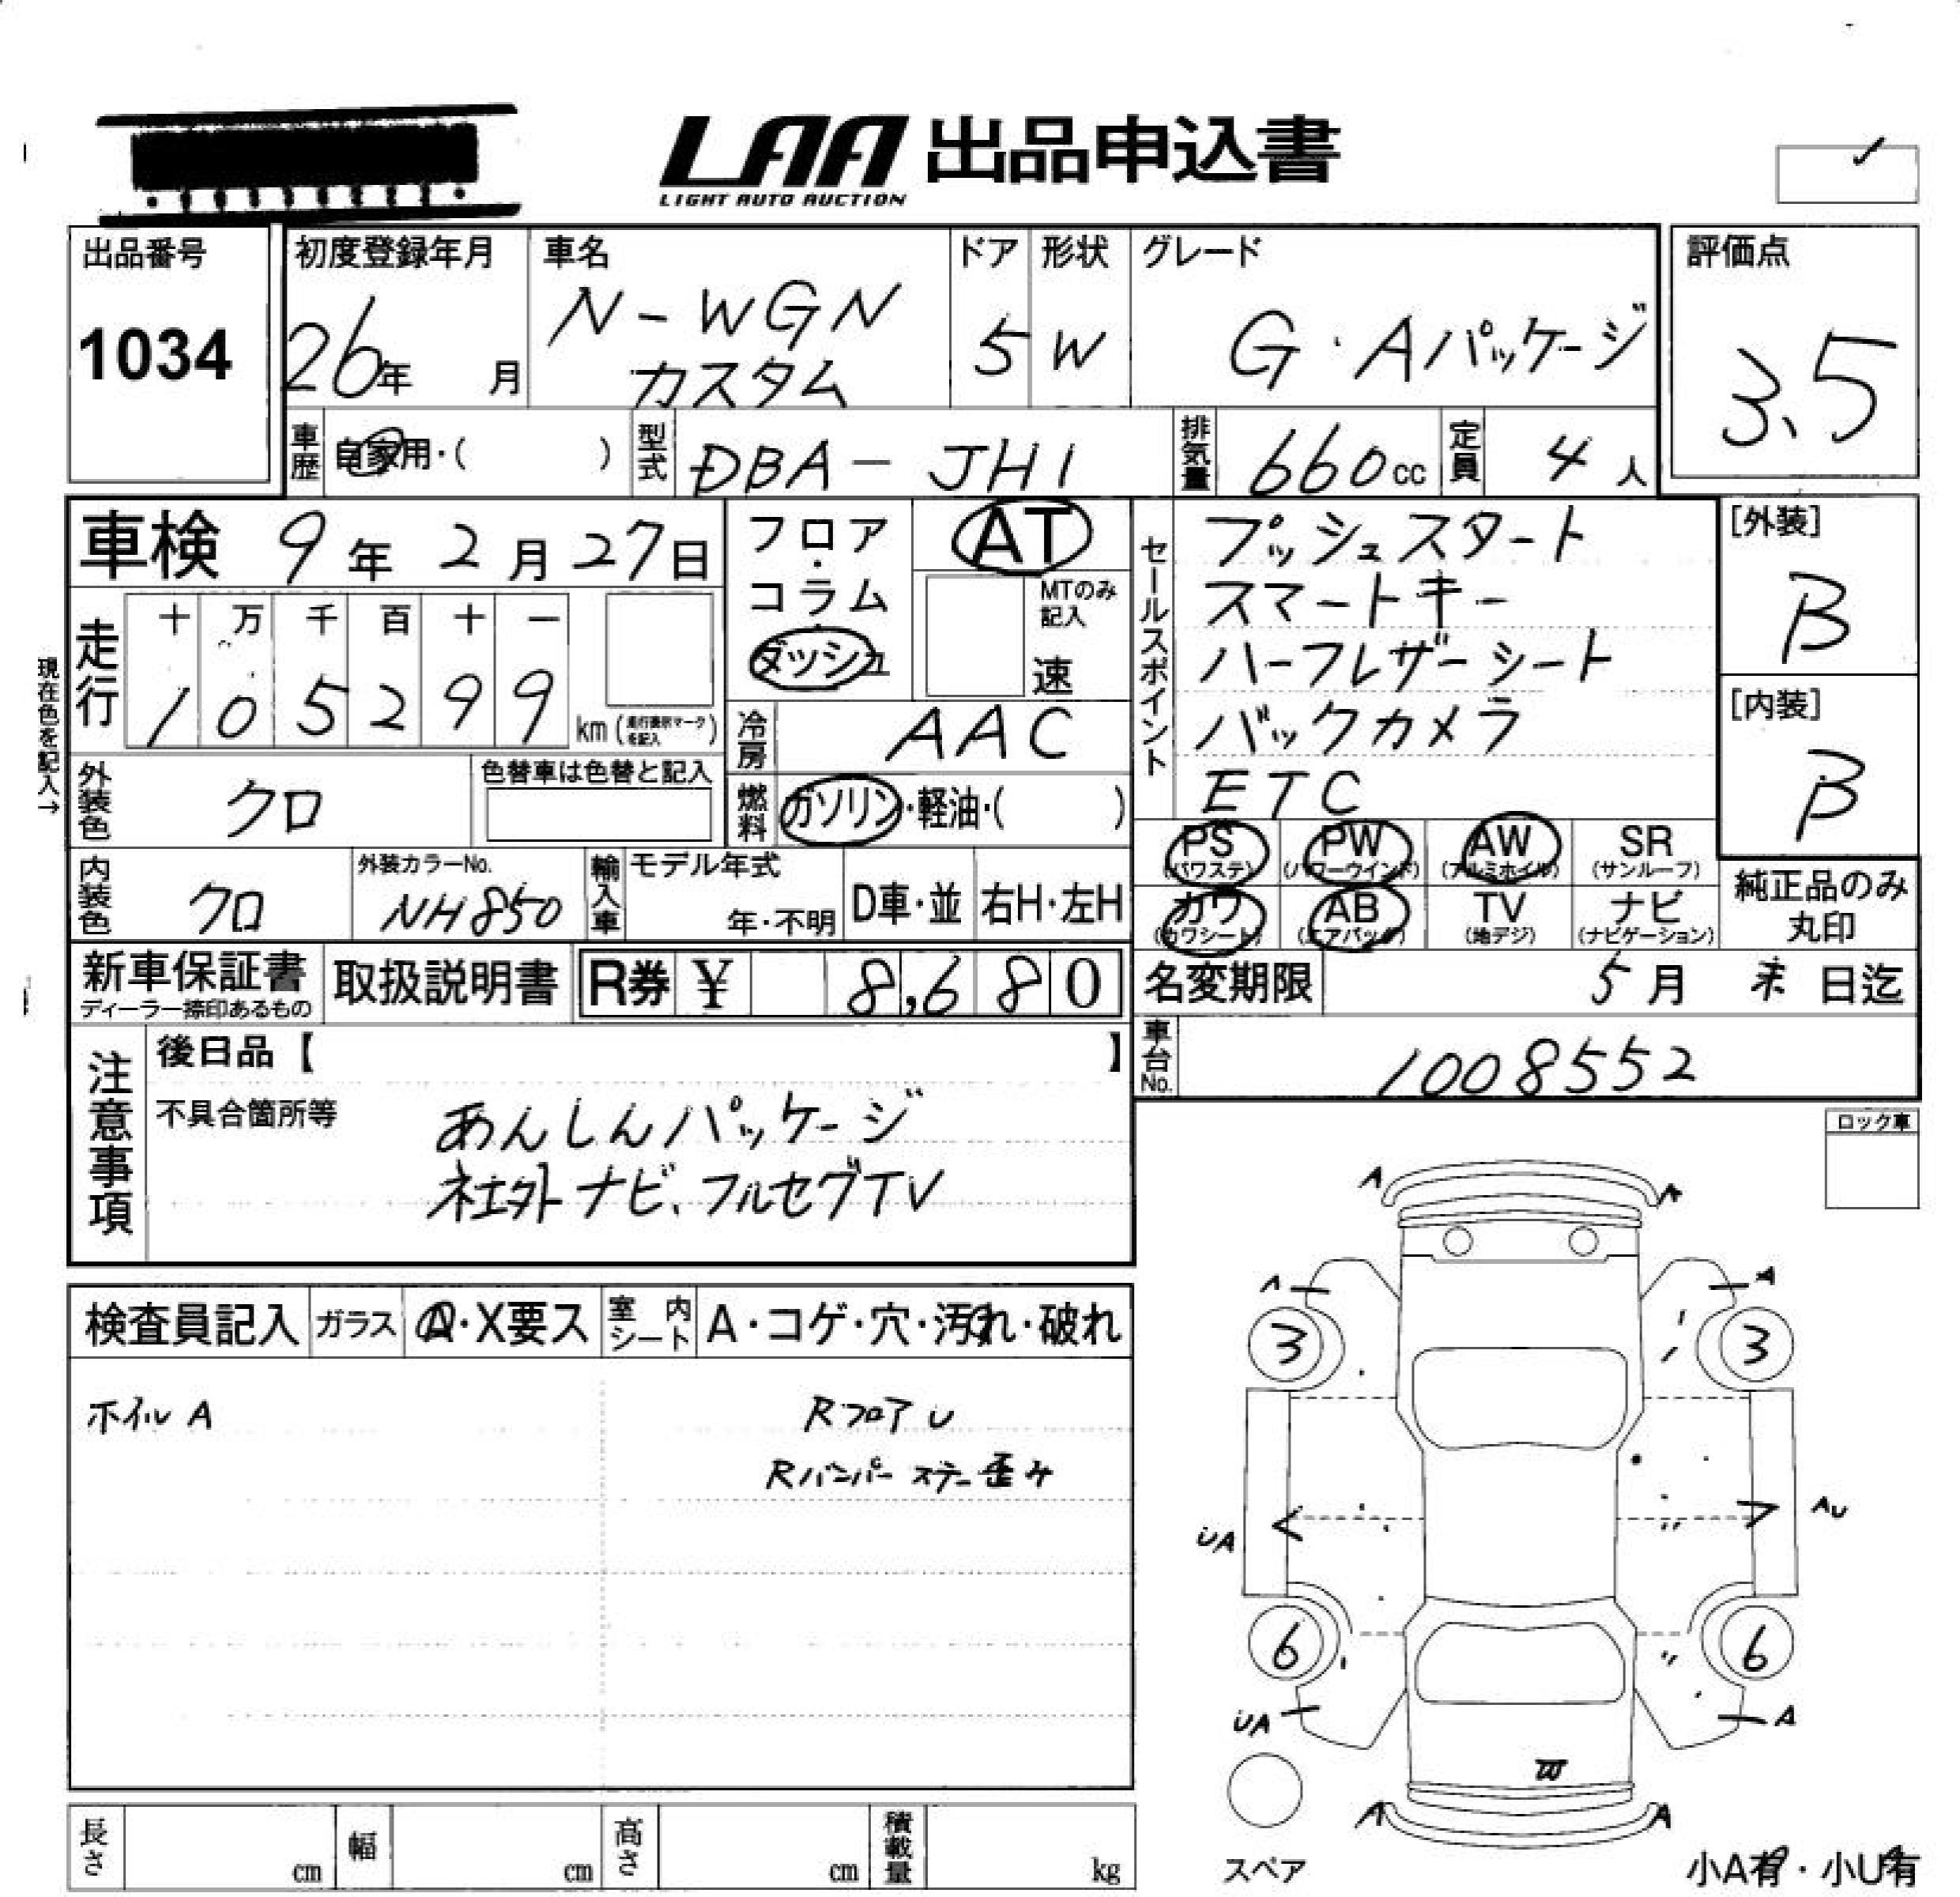 LAA 出品申込書
LIGHT AUTO AUCTION
出品番号
1034
初度登録年月
26年 月
車名
N-WGN
カスタム
ドア
5
形状
W
グレード
G・Aパッケージ
評価点
3.5
車歴 自家用・( )
型式 DBA-JH1
排気量 660cc
定員 4人
車検 9年2月27日
フロア・コラム・ダッシュ
AT
MTのみ記入
速
セールスポイント
プッシュスタート
スマートキー
ハーフレザーシート
バックカメラ
ETC
[外装]
B
[内装]
B
現在色を記入→
走行
十 万 千 百 十 一
1 0 5 2 9 9 km (走行表示マークを記入)
冷房 AAC
外装色 クロ
色替車は色替と記入
燃料 ガソリン・軽油・( )
PS (パワステ)
PW (パワーウインド)
AW (アルミホイル)
SR (サンルーフ)
内装色 クロ
外装カラーNo. NH850
輸入車 モデル年式
年・不明
D車・並
右H・左H
カワ (カワシート)
AB (エアバッグ)
TV (地デジ)
ナビ (ナビゲーション)
純正品のみ
丸印
新車保証書
ディーラー捺印あるもの
取扱説明書
R券 ¥ 8,680
名変期限 5月 末 日迄
車台No. 1008552
注意事項
後日品【 】
不具合箇所等
あんしんパッケージ
社外ナビ、フルセグTV
ロック車
検査員記入
ガラス A・X要ス
室内シート A・コゲ・穴・汚れ・破れ
ホイル A
Rフロア U
Rバンパーステー歪み
A
A
A
A
3
3
UA
AU
6
6
UA
A
W
A
A
スペア
長さ cm
幅 cm
高さ cm
積載量 kg
小A有・小U有